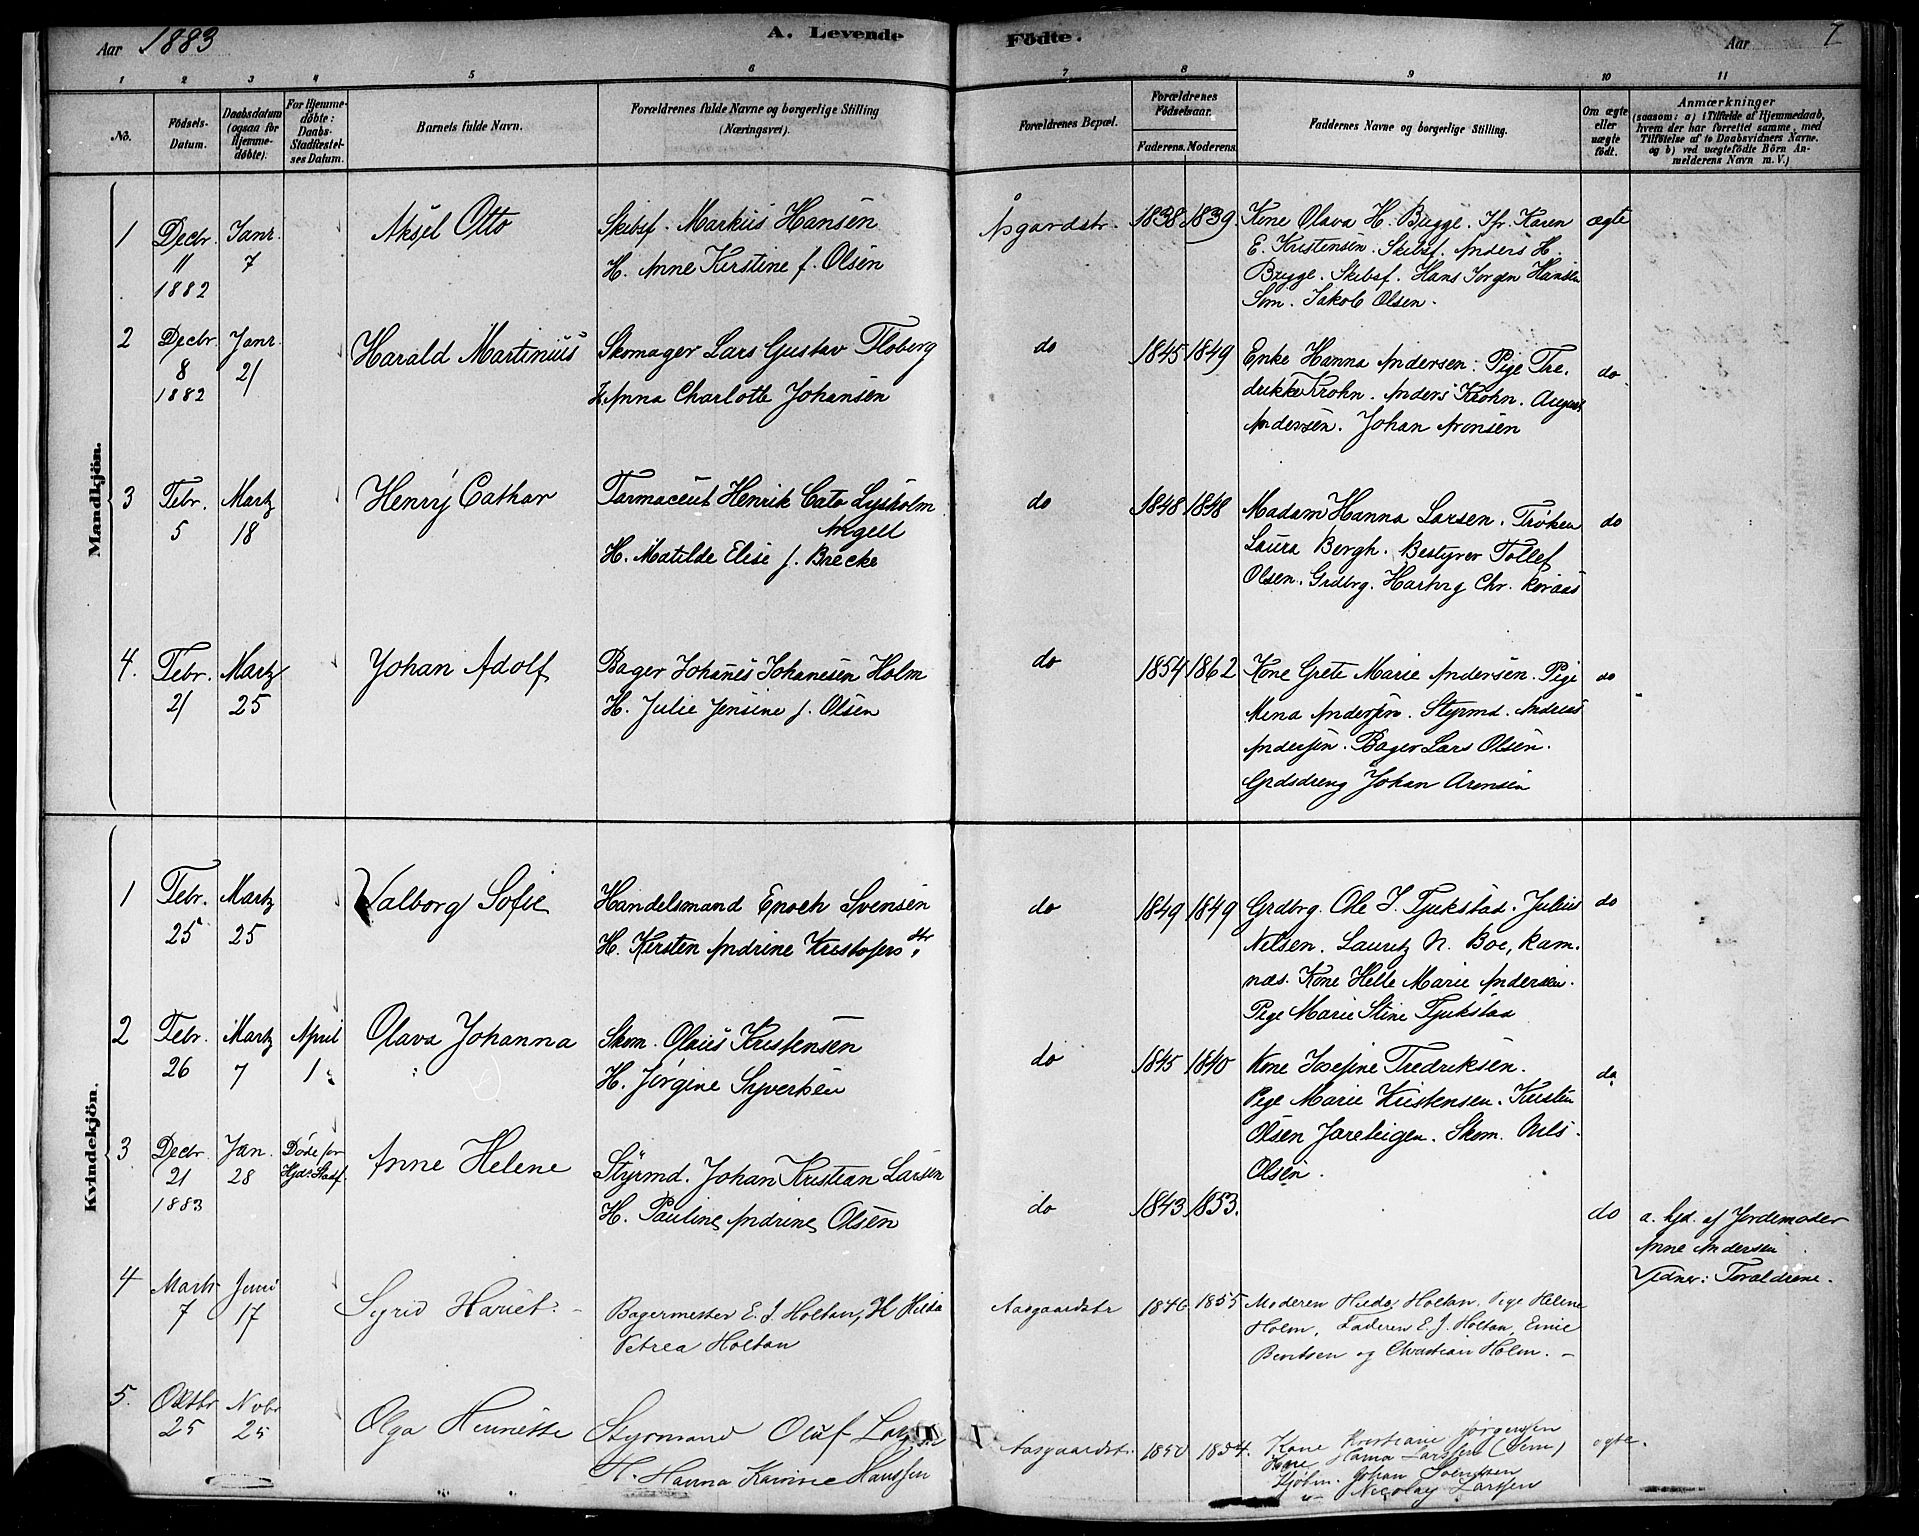 Aar 1883
A. Levende
Födte.
Aar 7
1 2 3 4 5 6 7 8 9 10 11
No.
Födsels-
Datum.
Daabsdatum
(ogsaa for
Hjemme-
döbte).
For Hjemme-
döbte:
Daabs-
Stadfæstel-
ses Datum.
Barnets fulde Navn.
Forældrenes fulde Navne og borgerlige Stilling
(Næringsvei).
Forældrenes Bopæl.
Forældrenes
Födselsaar.
Faderens. Moderens.
Faddernes Navne og borgerlige Stilling.
Om ægte
eller
uægte
födt.
Anmærkninger
(saasom: a) i Tilfælde af Hjemmedaab,
hvem der har forrettet samme, med
Tilföielse af to Daabsvidners Navne.
og b) ved uægtefödte Börn An-
melderens Navn m. V.)
Mandkjön.
1
Decbr.
11
1882
Janr.
7
Aksel Otto
Skibsf. Markus Hansen
H. Anne Kirstine f. Olsen
Åsgardstr.
1838 1839.
Kone Olava H. Brygge. Jfr. Karen
E. Kristensen. Skibsf. Anders H.
Brygge. Skibsf. Hans Jørgen Hansen
Søm. Jakob Olsen.
ægte
2
Decbr.
8
1882
Janr.
21
Harald Martinius
Skomager Lars Gustav Floberg
H. Anna Charlotte Johansen
do
1845 1849
Enke Hanna Andersen. Pige Fre-
drikke Krohn. Anders Krohn. August
Andersen. Johan Aronsen
do
3
Febr.
5
Martz
18
Henry Cathar
Farmaceut Henrik Cato Lysholm
Angell
H. Matilde Elise f. Brecke
do
1848 1848
Madam Hanna Larsen. Frøken
Laura Bergh. Bestyrer Tollef
Olsen. Grdbrg. Hartvig Chr.
do
4.
Febr.
21
Martz
25
Johan Adolf
Bager Johanes Johanesen Holm
H. Julie Jensine f. Olsen
do
1854 1862
Kone Grete Marie Andersen. Pige
Mina Andersen. Styrmd. Andreas
Andersen. Bager Lars Olsen.
Grdsdreng Johan Aronsen
do
Kvindekjön.
1
Febr.
25
Martz
25
Valborg Sofie
Handelsmand Enoch Svensen
H. Kirsten Andrine Kristofersdtr
do
1849 1849
Grdbrg. Ole J. Fjukstad. Julius
Nilsen. Lauritz N. Boe, Ram-
næs. Kone Helle Marie Andersen.
Pige Marie Stine Fjukstad
do
2
Febr.
26
Martz
7
April
1
Olava Johanna
Skom. Olaus Kristensen
H. Jørgine Syvertsen
do
1845 1840
Kone Josefine Fredriksen.
Pige Marie Kristensen. Kirsten
Olsen Jareteigen. Skom. Nils
Olsen.
do
3
Decbr.
21
1883
Jan.
28
Døde før
Hjd. Stadf.
Anne Helene
Styrmd. Johan Kristian Larsen
H. Pauline Andrine Olsen
do
1843 1853.
do
a. hjd. af Jordemoder
Anne Andersen
Vidner: Forældrene.
4
Marts
7
Juni
17
Syrid Hariet
Bagermester E. J. Holtan, H Hilda
Petrea Holtan
Aasgaardstr
1846 1855
Moderen Hilda Holtan. Pige Helene
Holm. Faderen E. J. Holtan, Emil
Berntsen og Christian Holm.
5.
Oktbr
25
Novbr
25
Olga Henriette
Styrmand Oluf Larsen
H. Hanna Karine Hanssen
Aasgaardstr.
1850 1854.
Kone Kristiane Jørgensen
Kone Hanna Larssen (Sem)
Kjøbm. Johan Svendsen
" Nicolay Larssen
ægte.